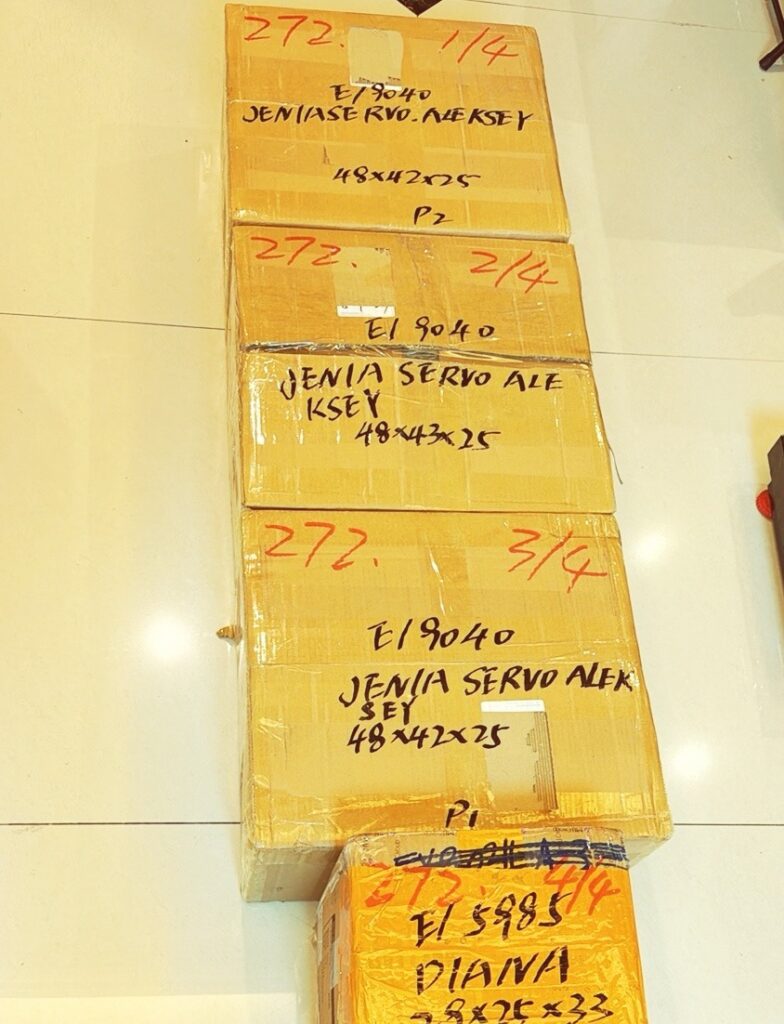 272. 1/4
E19040
JENIASERVO.ALEKSEY
48x42x25
P2
272. 2/4
E19040
JENIA SERVO ALE
KSEY
48x43x25
272. 3/4
E19040
JENIA SERVO ALEK
SEY
48x42x25
P1
272. 4/4
E15985
DIANA